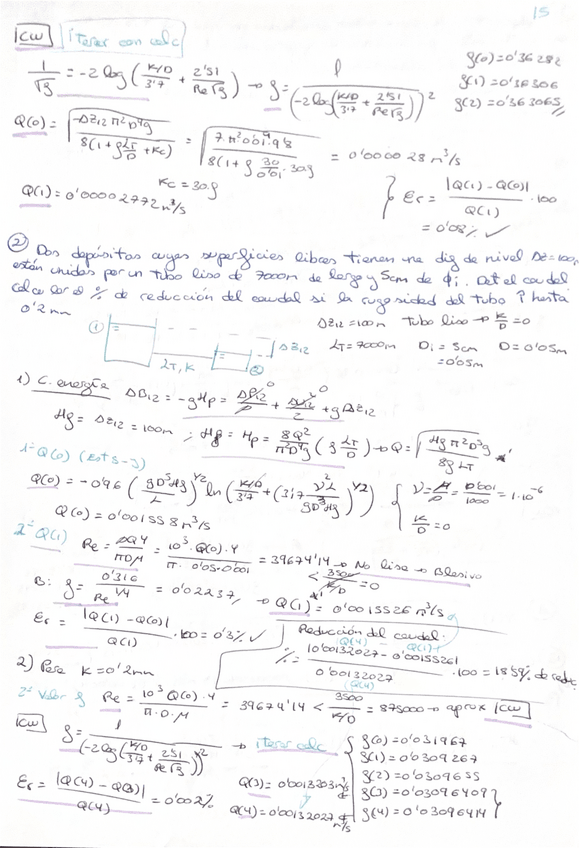 15
KW iterar con calc
1/√f = -2 log (K/D/3'7 + 2'51/Re√f) → f = 1/(-2 log(K/D/3'7 + 2'51/Re√f))²
f(0)=0'36282
f(1)=0'36306
f(2)=0'363065
Q(0) = √(ΔZ12 π² D⁴ g / 8(1+f LT/D + Kc)) = √(7 π² 0'01⁴ 9'8 / 8(1+f 30/0'01 · 30f)) = 0'000028 m³/s
Kc = 30f
Q(1) = 0'00002772 m³/s
Er = |Q(1) - Q(0)| / Q(1) · 100
= 0'08% ✓
② Dos depósitos cuyas superficies libres tienen una dif de nivel Δz=100,
están unidos por un tubo liso de 7000m de largo y 5cm de ϕi. Det el caudal
calcular el % de reducción del caudal si la rugosidad del tubo ↑ hasta
0'2 mm
ΔZ12=100m tubo liso → K/D = 0
LT=7000m Di = 5cm D=0'05m
=0'05m
① ② ΔZ12
LT, K
1) C. energía ΔB12 = -gHp = ΔP12/ρ + ΔV12²/2 + gΔZ12
0 0
Hg = ΔZ12 = 100m ; Hg = Hp = 8Q²/π²D⁴g (f LT/D) → Q = √(Hg π² D⁵ g / 8f LT)
1º Q(0) (Est S-J)
Q(0) = -0'96 (gD⁵Hg/L)^1/2 ln (K/D/3'7 + (3'17 ν²L/gD³Hg)^1/2)
ν = μ/ρ = 0'001/1000 = 1·10⁻⁶
K/D = 0
Q(0) = 0'001558 m³/s
2º Q(1)
Re = ρQ4/πDμ = 10³·Q(0)·4/π·0'05·0'001 = 39674'14 → No liso → Blasivo
< 3500/K/D = 0
B: f = 0'316/Re^1/4 = 0'02237 → Q(1) = 0'0015526 m³/s
Er = |Q(1) - Q(0)|/Q(1) · 100 = 0'3% ✓
Reducción del caudal.
Q(4) - Q(1)
% = |0'00132027 - 0'00155261| / 0'00132027 · 100 = 18'59% de reduc
Q(4)
2) Para K=0'2mm
2º Valor f Re = 10³ Q(0)·4/π·D·μ = 39674'14 < 3500/K/D = 875000 → aprox KW
KW f = 1/(-2 log(K/D/3'7 + 2'51/Re√f))² → iterar calc
f(0)=0'031967
f(1)=0'0309267
f(2)=0'0309655
f(3)=0'03096409
f(4)=0'03096414
Q(3)= 0'0013203 m³/s
Q(4)=0'00132027 m³/s
Er = |Q(4) - Q(3)|/Q(4) = 0'002%